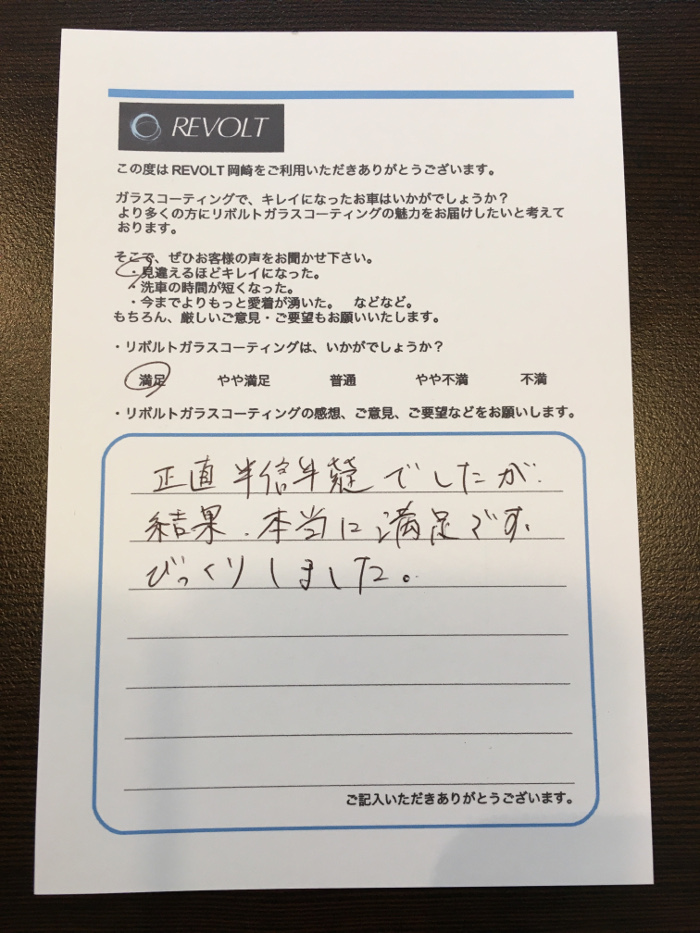 REVOLT
この度はREVOLT岡崎をご利用いただきありがとうございます。
ガラスコーティングで、キレイになったお車はいかがでしょうか?
より多くの方にリボルトガラスコーティングの魅力をお届けしたいと考えて
おります。
そこで、ぜひお客様の声をお聞かせ下さい。
・見違えるほどキレイになった。
・洗車の時間が短くなった。
・今までよりもっと愛着が湧いた。 などなど。
もちろん、厳しいご意見・ご要望もお願いいたします。
・リボルトガラスコーティングは、いかがでしょうか?
満足 やや満足 普通 やや不満 不満
・リボルトガラスコーティングの感想、ご意見、ご要望などをお願いします。
正直半信半疑でしたが、
結果、本当に満足です。
びっくりしました。
ご記入いただきありがとうございます。